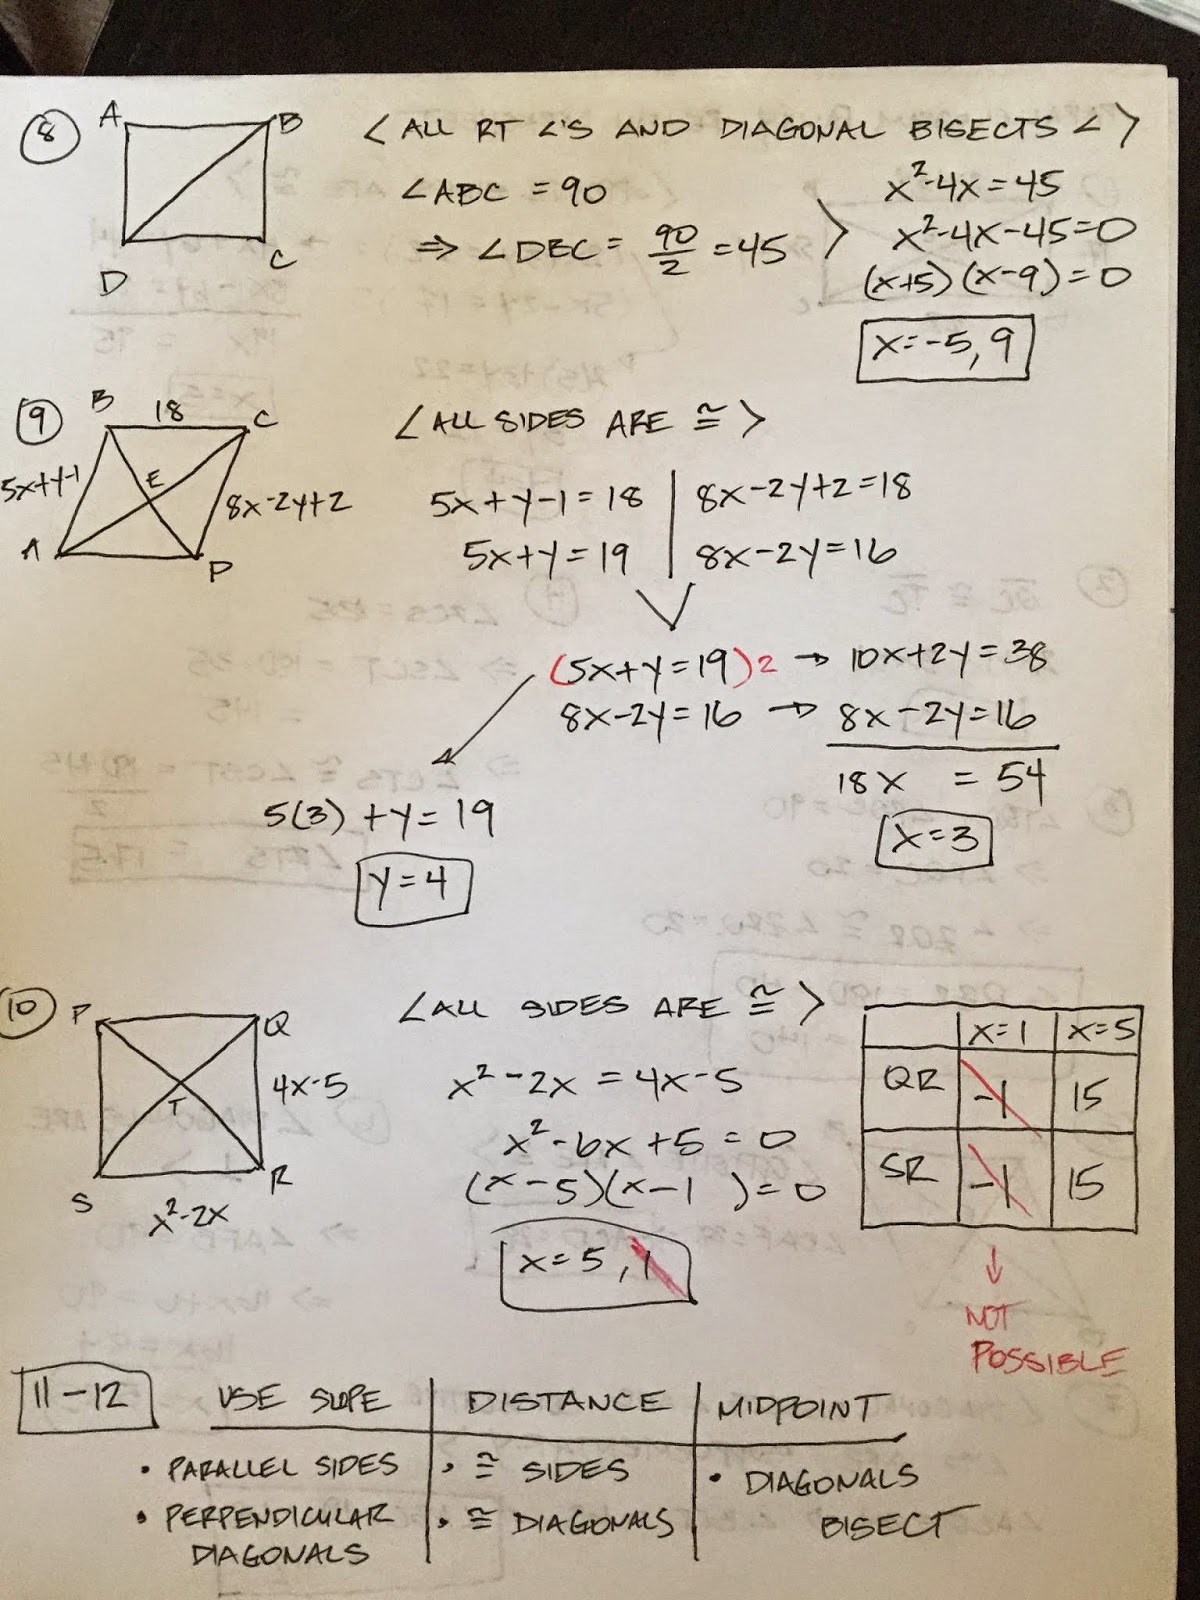 8
A B
D C
< ALL RT ∠'S AND DIAGONAL BISECTS ∠ >
∠ABC = 90
⇒ ∠DBC = 90/2 = 45
x²-4x = 45
x²-4x-45=0
(x+5)(x-9)=0
x=-5, 9
9
B 18 C
5x+y-1 E 8x-2y+2
A D
< ALL SIDES ARE ≅ >
5x+y-1=18 | 8x-2y+2=18
5x+y=19 | 8x-2y=16
(5x+y=19)2 → 10x+2y=38
8x-2y=16 → 8x-2y=16
18x = 54
x=3
5(3)+y=19
y=4
10
P Q
T 4x-5
S R
x²-2x
< ALL SIDES ARE ≅ >
x²-2x = 4x-5
x²-6x+5 = 0
(x-5)(x-1)=0
x=5, 1
x=1 x=5
QR -1 15
SR -1 15
↓
NOT
POSSIBLE
11-12
USE SLOPE | DISTANCE | MIDPOINT
• PARALLEL SIDES | • ≅ SIDES | • DIAGONALS
• PERPENDICULAR | • ≅ DIAGONALS | BISECT
DIAGONALS